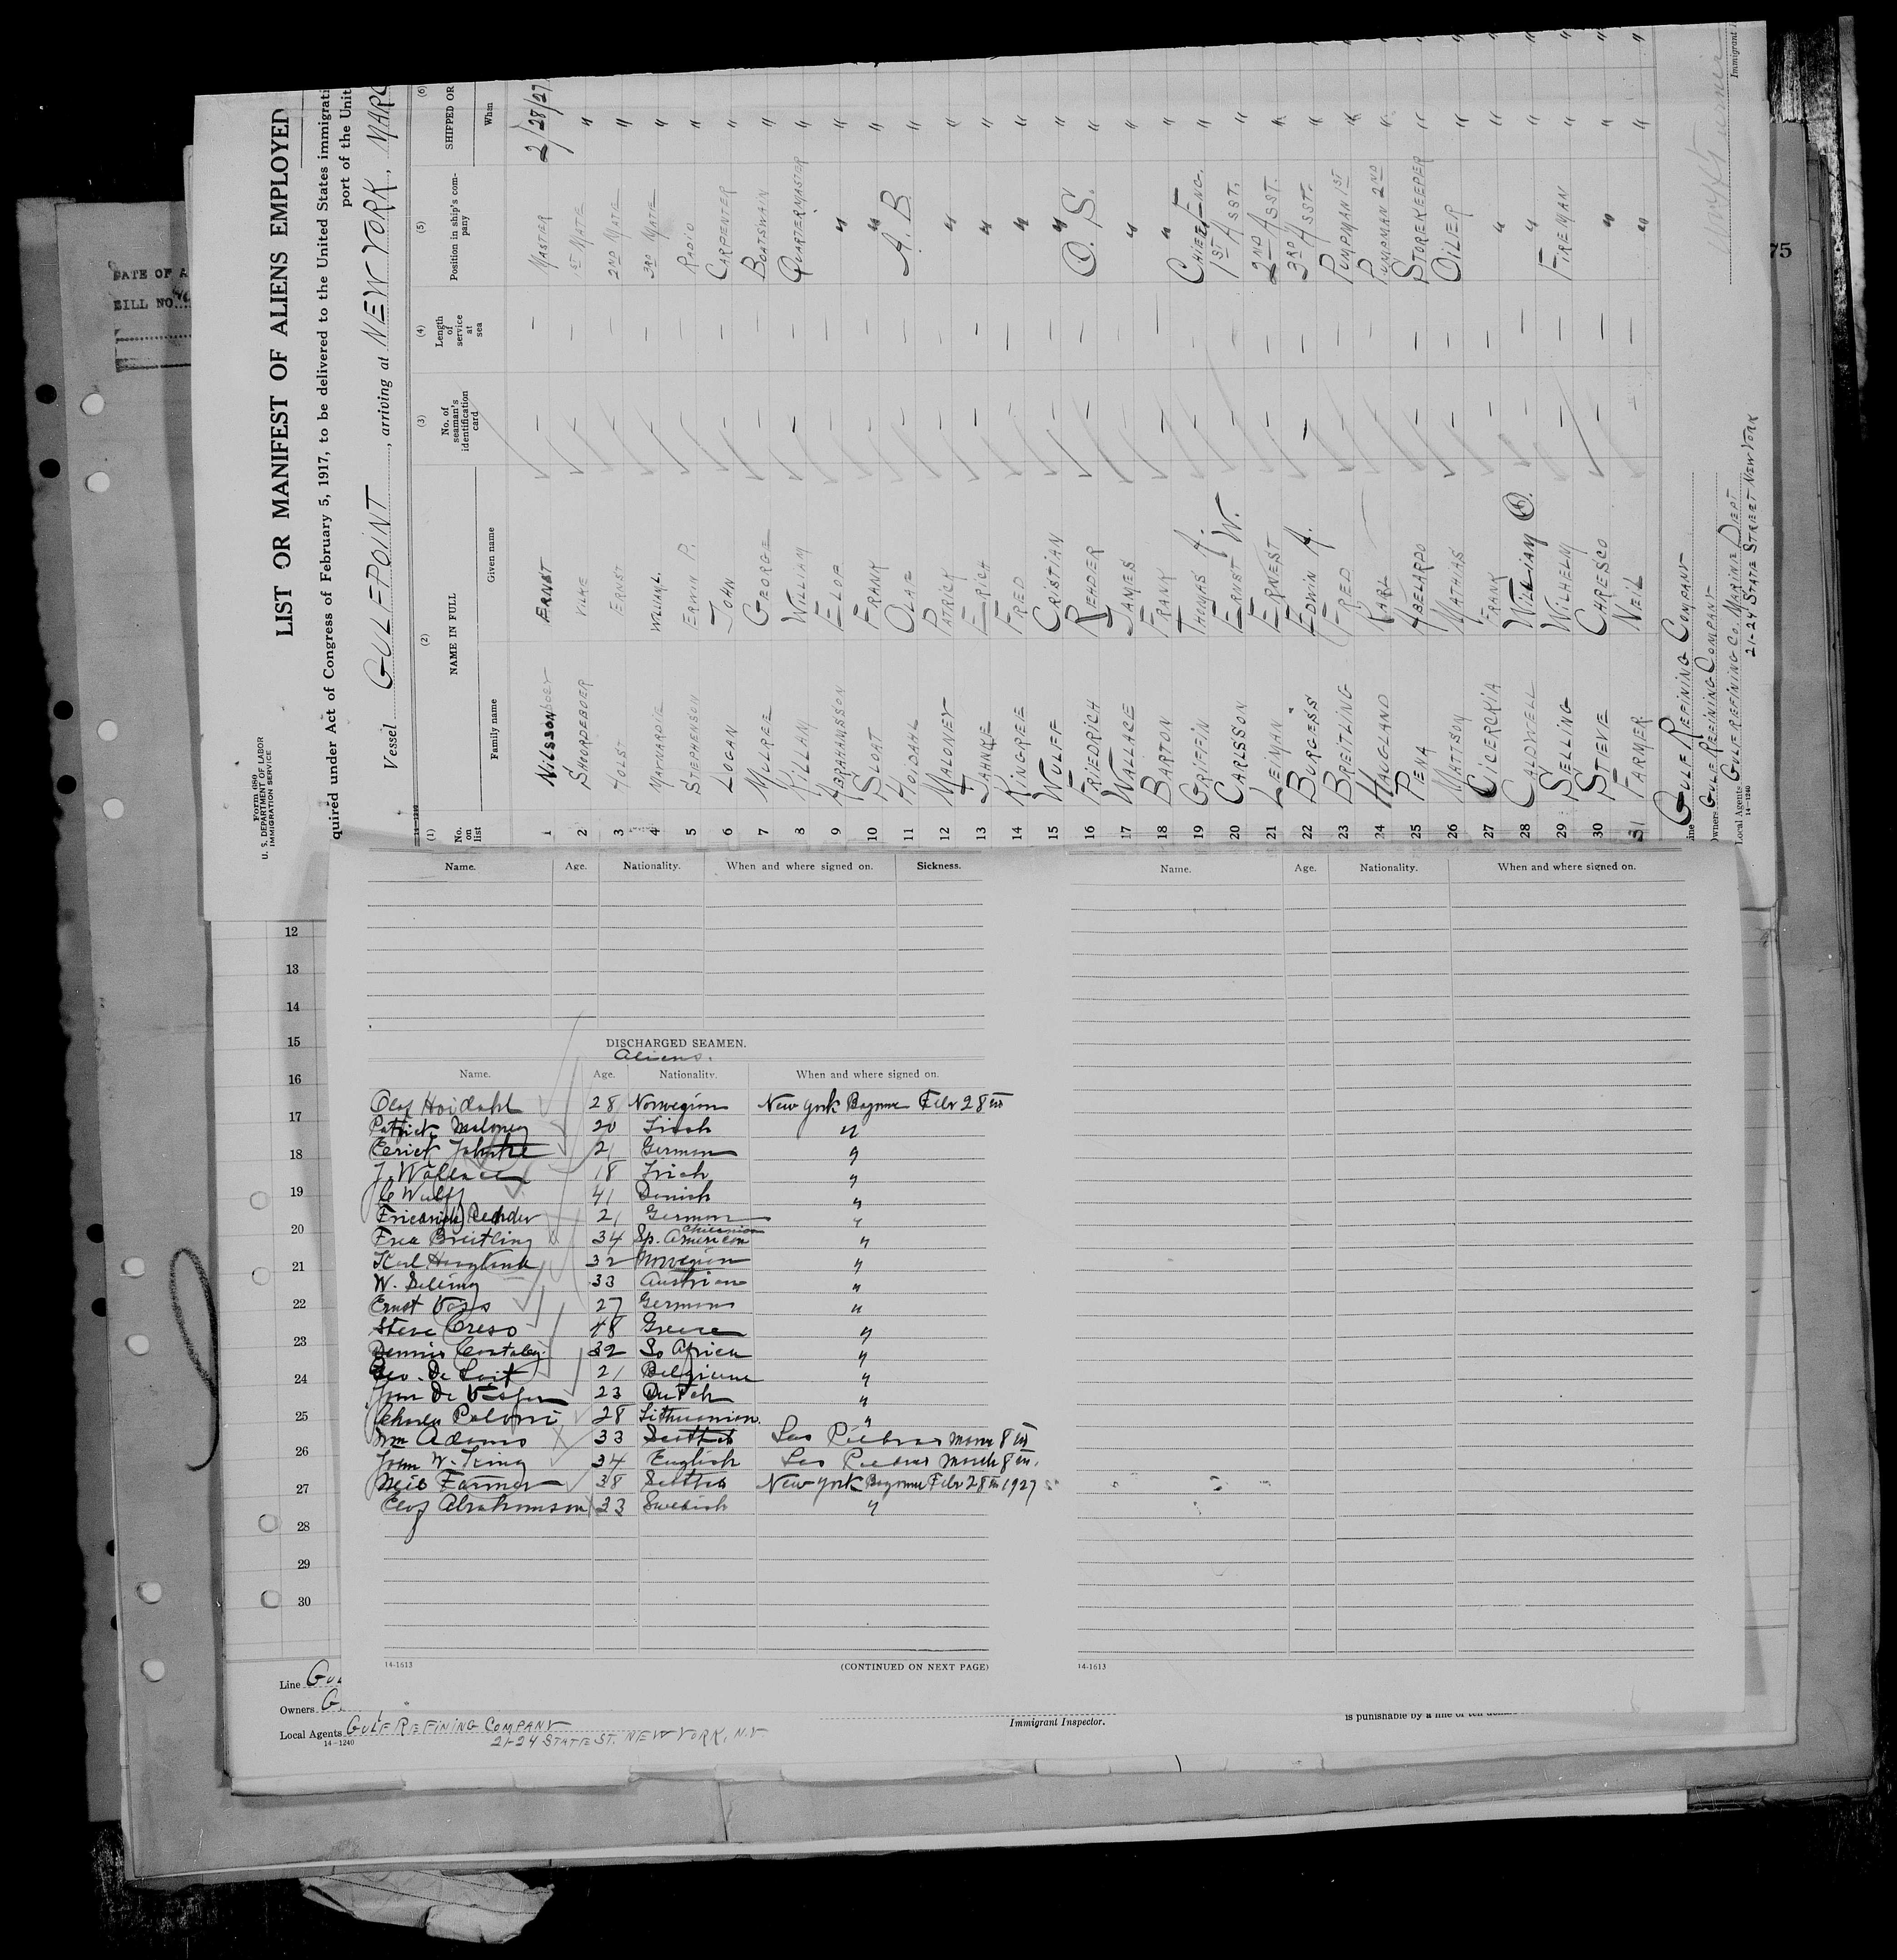 Form 680
U. S. DEPARTMENT OF LABOR
IMMIGRATION SERVICE
LIST OR MANIFEST OF ALIENS EMPLOYED
quired under Act of Congress of February 5, 1917, to be delivered to the United States immigrati
port of the Unit
Vessel GULFPOINT, arriving at NEW YORK, MARC
14-1240
(1) (2) (3) (4) (5) (6)
No. on list NAME IN FULL No. of seaman's identification card Length of service at sea Position in ship's company SHIPPED OR
Family name Given name When
1 NILSSON ERNST — — MASTER 2/28/27
2 SHOORDEBOER — — 1ST MATE "
3 HOLST ERNST — — 2ND MATE "
4 WILLIAM. — — 3RD MATE "
5 STEPHENSON ERWIN P. — — RADIO "
6 LOGAN JOHN — — CARPENTER "
7 GEORGE — — BOATSWAN "
8 KILLAM WILLIAM — — QUARTERMASTER "
9 ABRAHAMSSON ELOF — — " "
10 SLOAT FRANK — — " "
11 HOIDAHL OLAF — — A. B. "
12 MALONEY PATRICK — — " "
13 JAHNKE ERICH — — " "
14 KINGREE FRED — — " "
15 WULFF CRISTIAN — — " "
16 FRIEDRICH REHDER — — O. S. "
17 WALLACE JAMES — — " "
18 BARTON FRANK — — " "
19 GRIFFIN THOMAS A. — — CHIEF ENG. "
20 CARLSSON ERNST W. — — 1ST ASST. "
21 LEIMAN ERNEST — — 2ND ASST. "
22 BURGESS EDWIN A. — — 3RD ASST. "
23 BREITLING FRED — — PUMPMAN 1ST "
24 HAUGLAND KARL — — PUMPMAN 2ND "
25 PENA ABELARDO — — STOREKEEPER "
26 MATTSON MATHIAS — — OILER "
27 CICIERCKIA FRANK — — " "
28 CALDWELL WILLIAM O. — — " "
29 SELLING WILHELM — — FIREMAN "
30 STEVE CHRESCO — — " "
31 FARMER NEIL — — " "
ine GULF REFINING COMPANY
Owners GULF REFINING COMPANY
Local Agents GULF REFINING CO. MARINE DEPT
14-1240
21-24 STATE STREET NEW YORK
Immigrant I
DATE OF A
BILL NO.
75
Name. Age. Nationality. When and where signed on. Sickness.
Name. Age. Nationality. When and where signed on.
DISCHARGED SEAMEN.
Aliens.
Name. Age. Nationality. When and where signed on.
Olaf Hoidahl 28 Norwegian New York Bayonne Febr 28th
Patrick Maloney 20 Irish "
Erick Jahnke 21 German "
J. Wallace 18 Irich "
C Wulff 41 Danish "
Friedrich Rehder 21 German "
Fred Breitling 34 Sp. American "
Karl 32 Norwegian "
W. Selling 33 Austrian "
Ernst Voss 27 German "
Steve Creso 48 Greece "
Dennis 32 So Africa "
Geo. De 21 Belgium "
De 23 Dutch "
Charles 28 Lithuanian "
Wm Adams 33 Las Piedras March 8th
John W. King 34 English Las Piedras March 8th.
Neil Farmer 38 New York Bayonne Febr 28th 1927
Elof Abrahamson 33 Swedish "
14-1613
(CONTINUED ON NEXT PAGE)
14-1613
12
13
14
15
16
17
18
19
20
21
22
23
24
25
26
27
28
29
30
Line Gul
Owners G
Local Agents GULF REFINING COMPANY
14-1240
21-24 STATE ST. NEW YORK, N.Y
Immigrant Inspector.
is punishable by a fine of ten